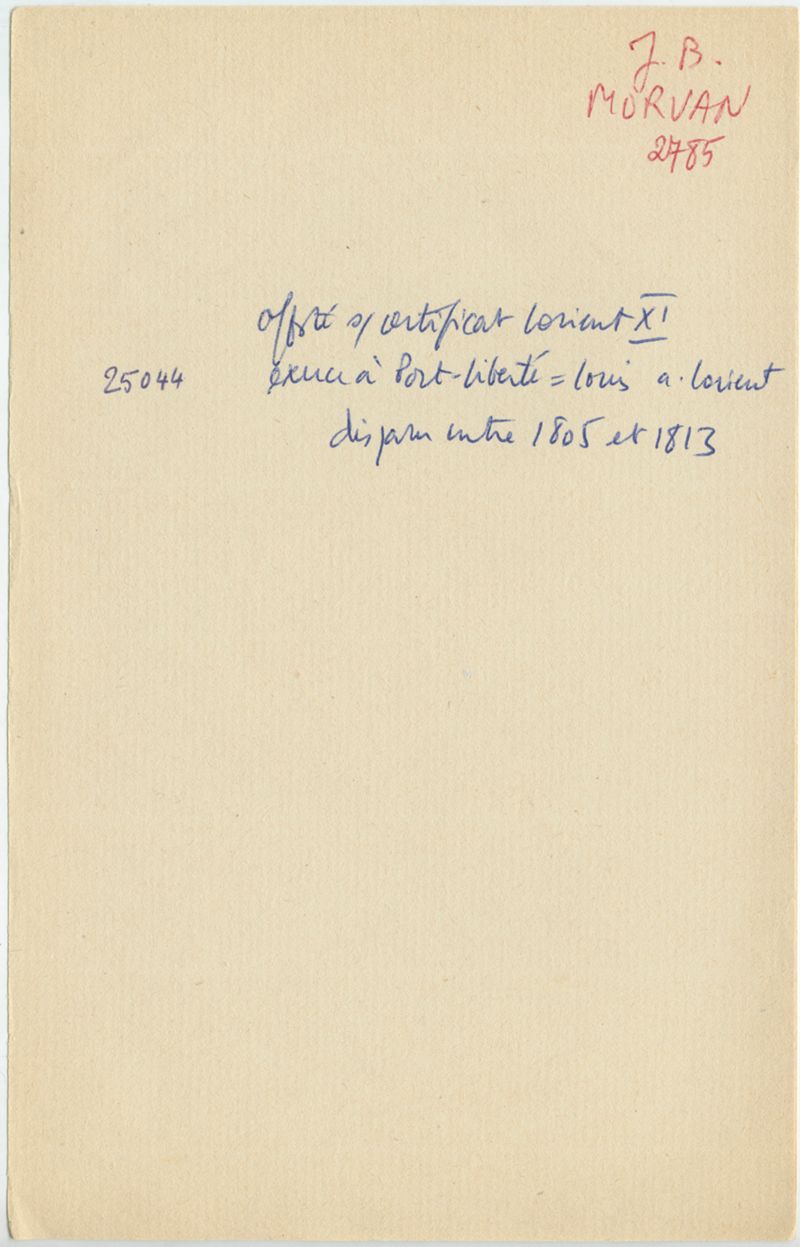 J. B.
MORVAN
2785
offsté s/ certificat Lorient XI
25044 exerce à Port-Liberté = Louis a. Lorient
disparu entre 1805 et 1813